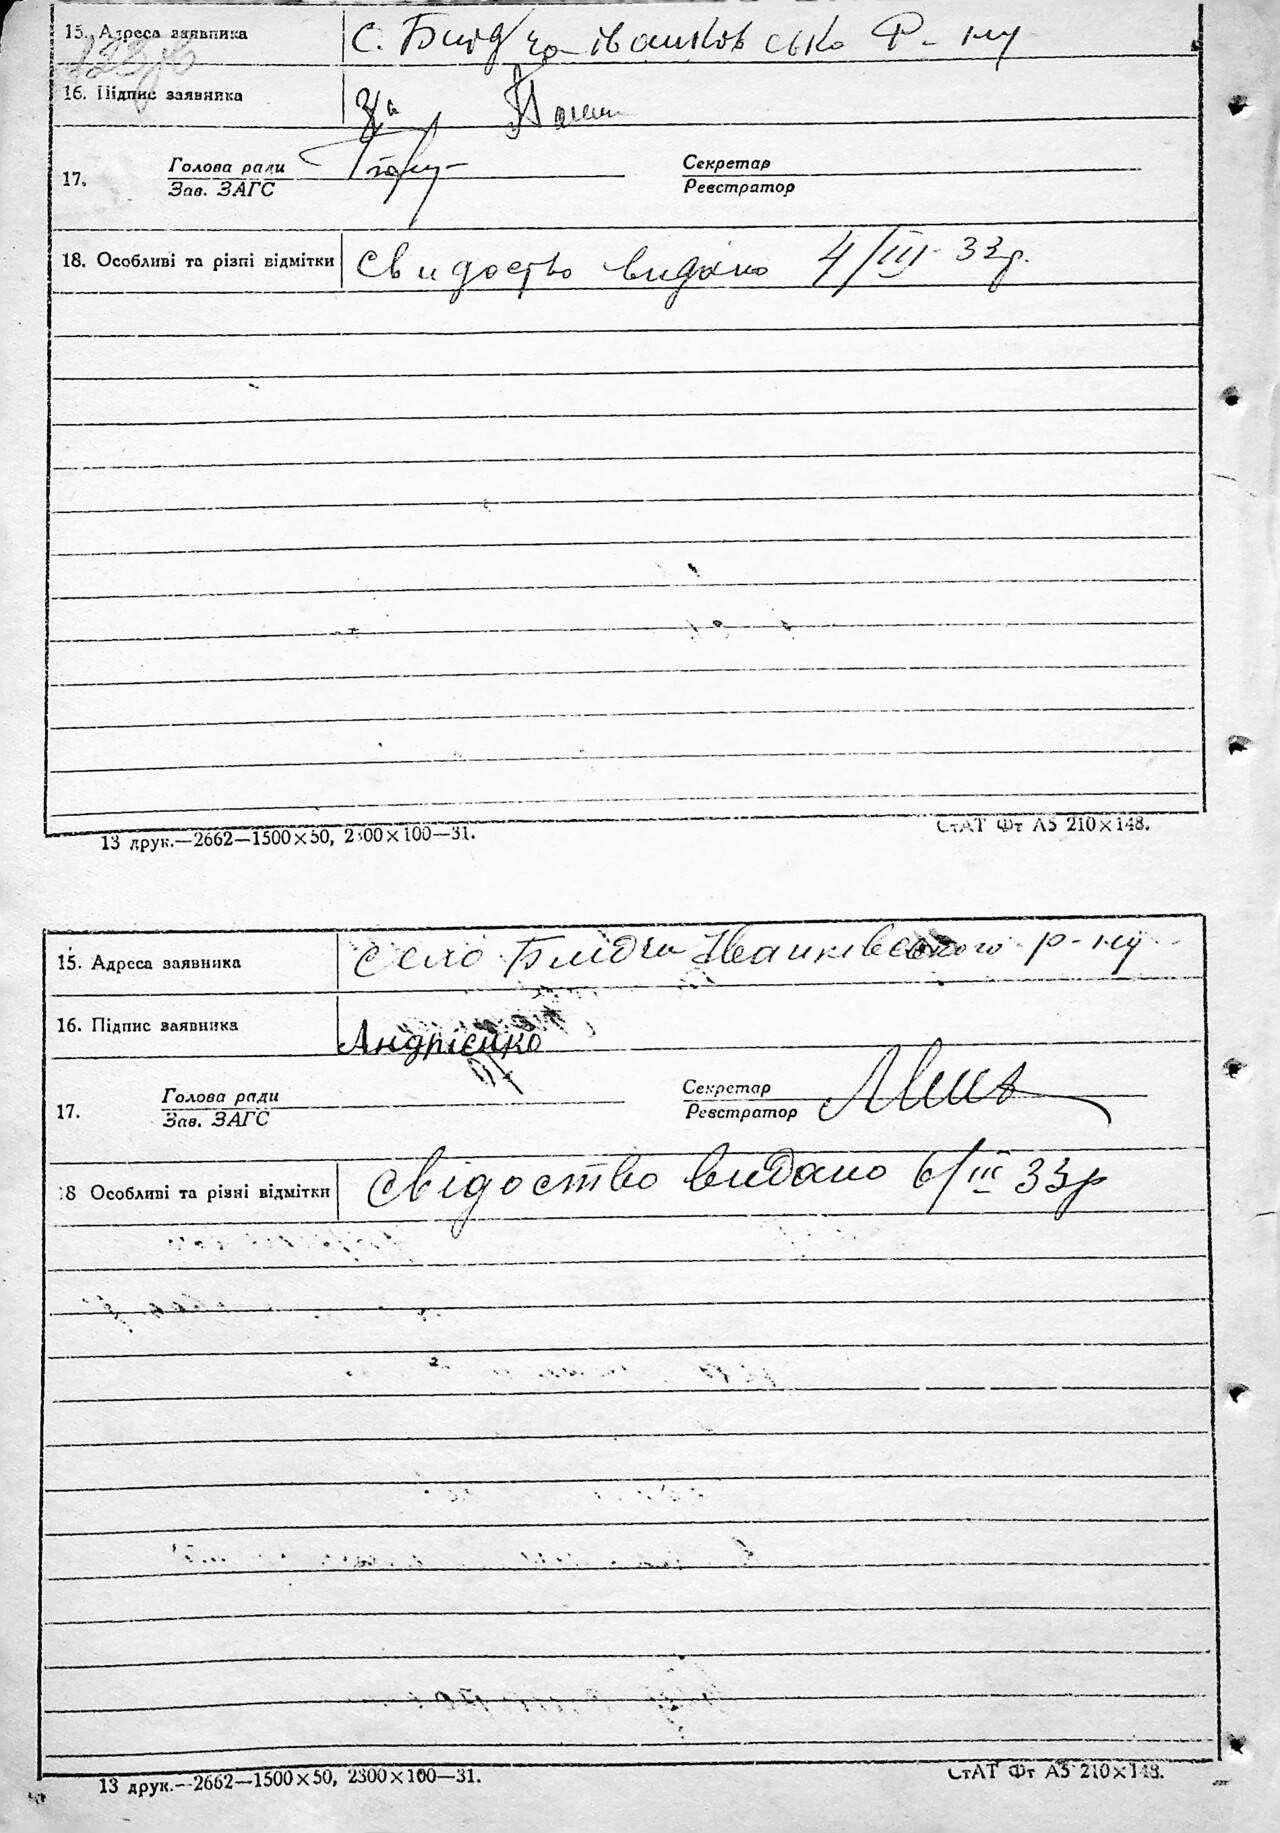 15. Адреса заявника с. Блідча іванковсько Р-ну
123
16. Підпис заявника За
17. Голова ради Секретар
Зав. ЗАГС Реєстратор
18. Особливі та різні відмітки Свидоство видано 4/III-33р.
13 друк.—2662—1500×50, 2300×100—31. СтАТ Фт А5 210×148.
15. Адреса заявника Село Блідча Іванківського р-ну
16. Підпис заявника Андрієнко
17. Голова ради Секретар
Зав. ЗАГС Реєстратор
18 Особливі та різні відмітки Свідоство видано 6/III 33р
13 друк.—2662—1500×50, 2300×100—31. СтАТ Фт А5 210×148.